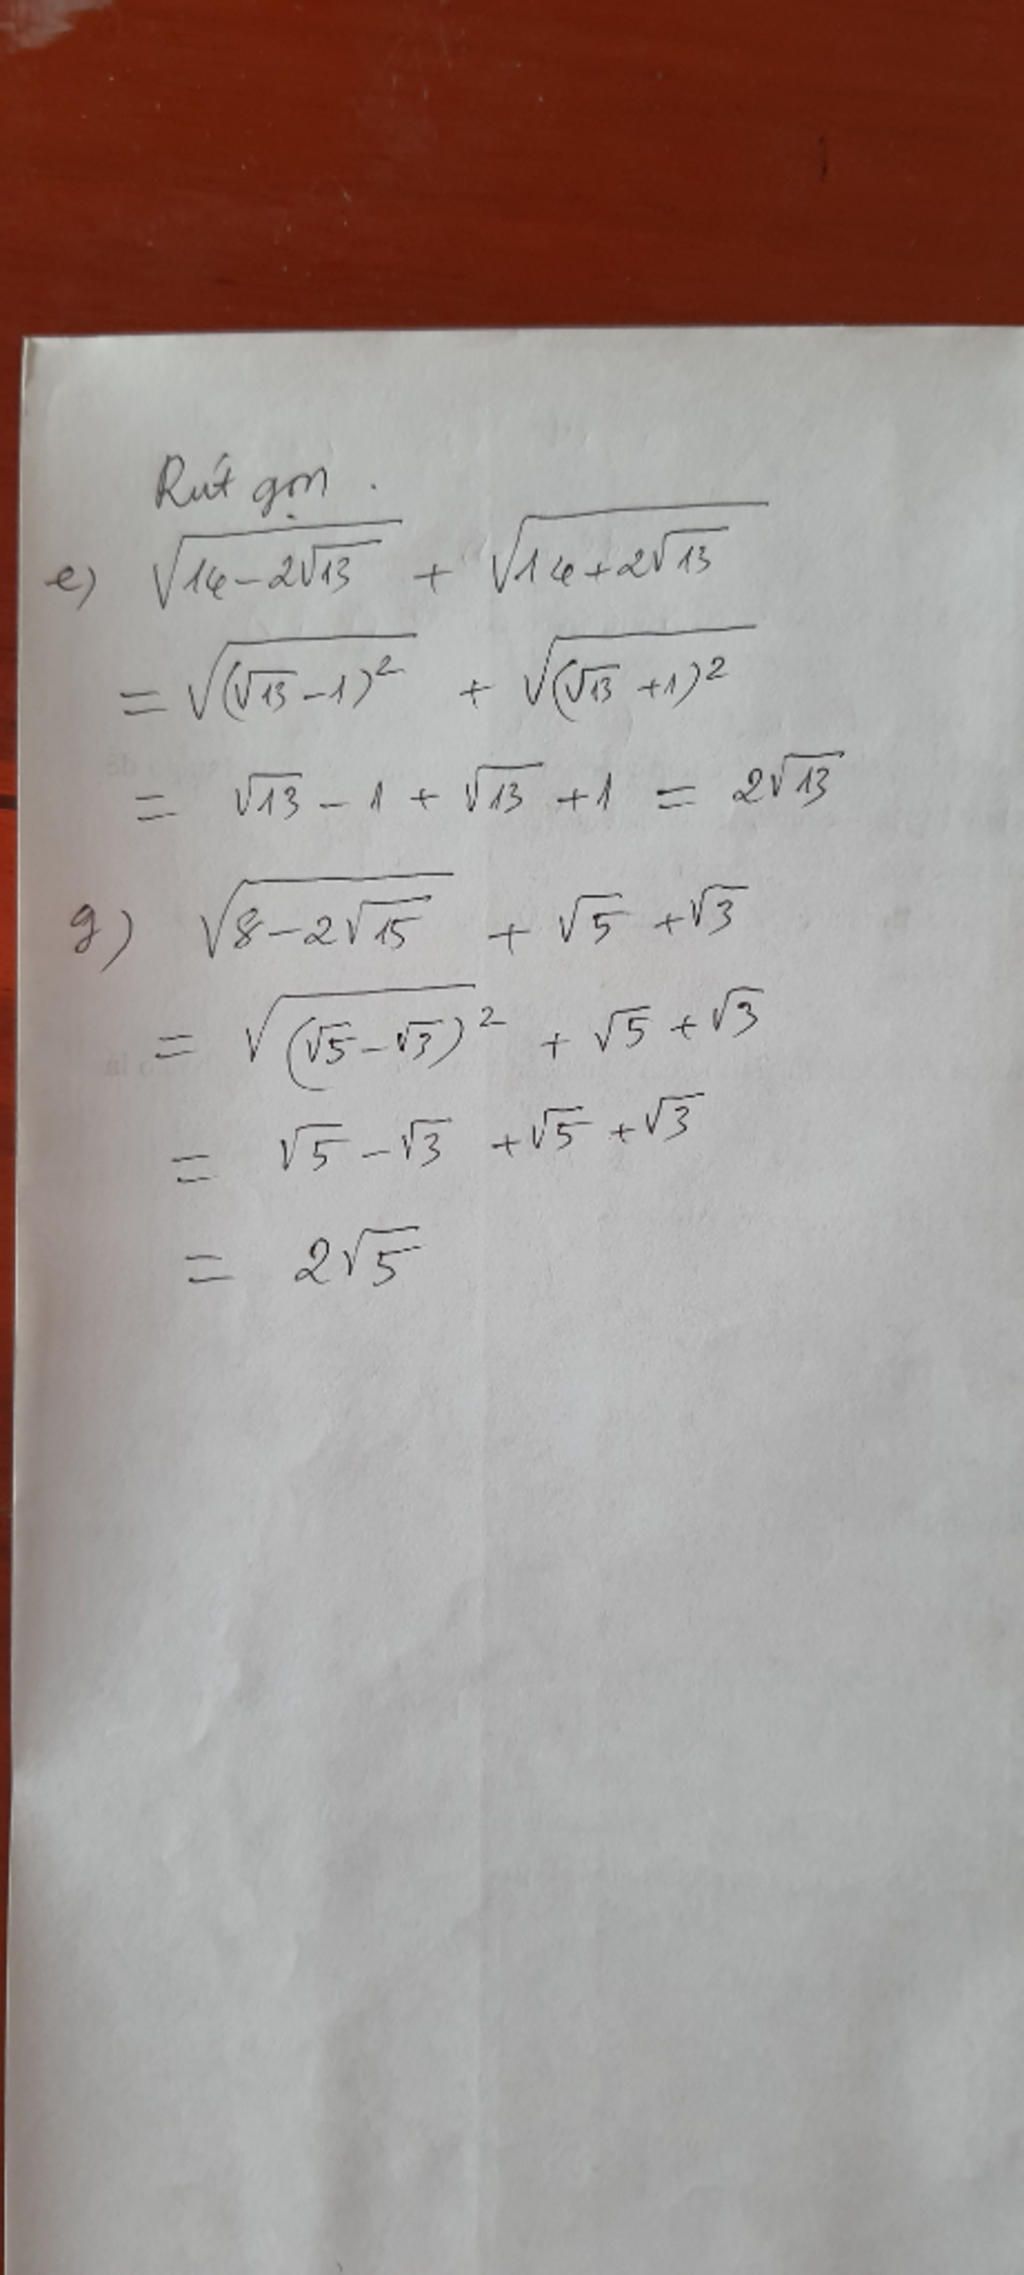 Rút gọn.
e) √(14-2√13) + √(14+2√13)
= √((√13-1)²) + √((√13+1)²)
= √13 - 1 + √13 + 1 = 2√13
g) √(8-2√15) + √5 + √3
= √((√5-√3)²) + √5 + √3
= √5 - √3 + √5 + √3
= 2√5